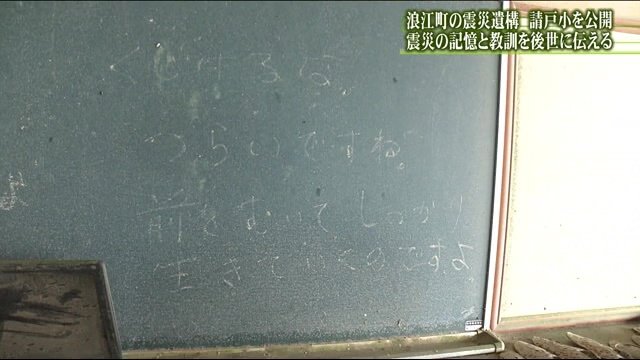 浪江町の震災遺構 請戸小を公開
震災の記憶と教訓を後世に伝える
くじけるな
つらいですね。
前をむいてしっかり
生きていくのですよ